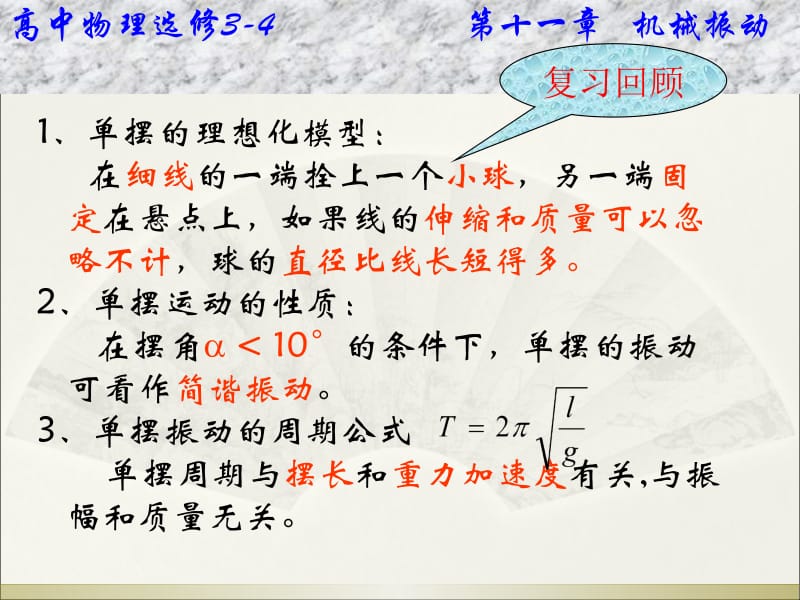 高中物理选修3-4 第十一章 机械振动
复习回顾
1、单摆的理想化模型：
在细线的一端拴上一个小球，另一端固
定在悬点上，如果线的伸缩和质量可以忽
略不计，球的直径比线长短得多。
2、单摆运动的性质：
在摆角α＜10°的条件下，单摆的振动
可看作简谐振动。
3、单摆振动的周期公式 T = 2π√(l/g)
单摆周期与摆长和重力加速度有关,与振
幅和质量无关。